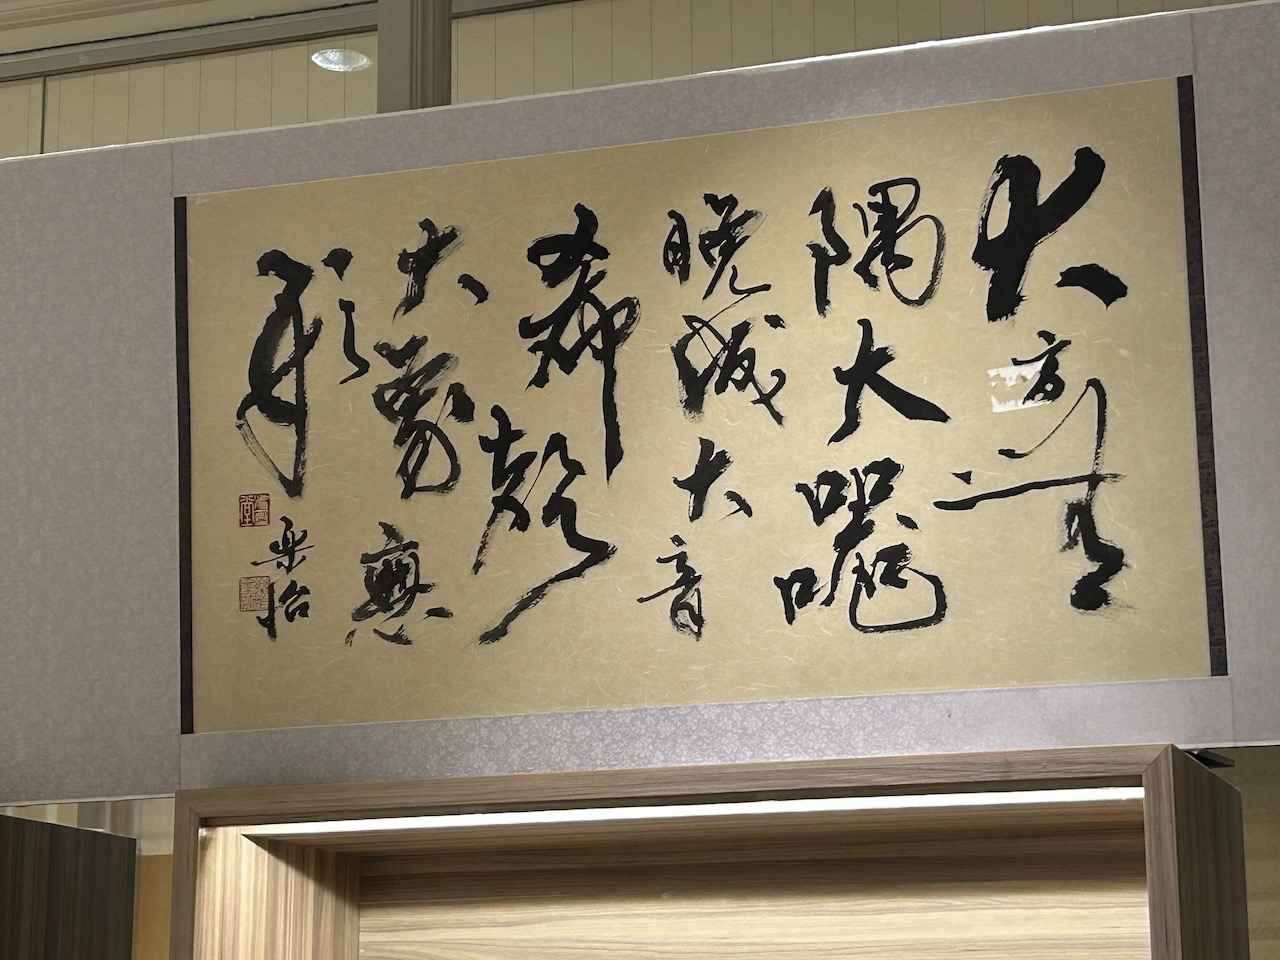 大方無
隅大器
晚成大音
希聲
大象無
形
樂怡